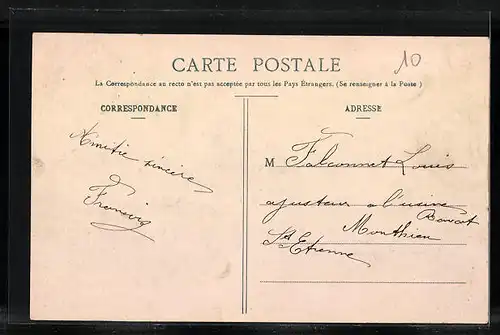 10
CARTE POSTALE
La Correspondance au recto n'est pas acceptée par tous les Pays Étrangers. (Se renseigner à la Poste)
CORRESPONDANCE
Amitié sincère
ADRESSE
M Falconnet Louis
ajusteur a l'usine
Monthieu
St Etienne